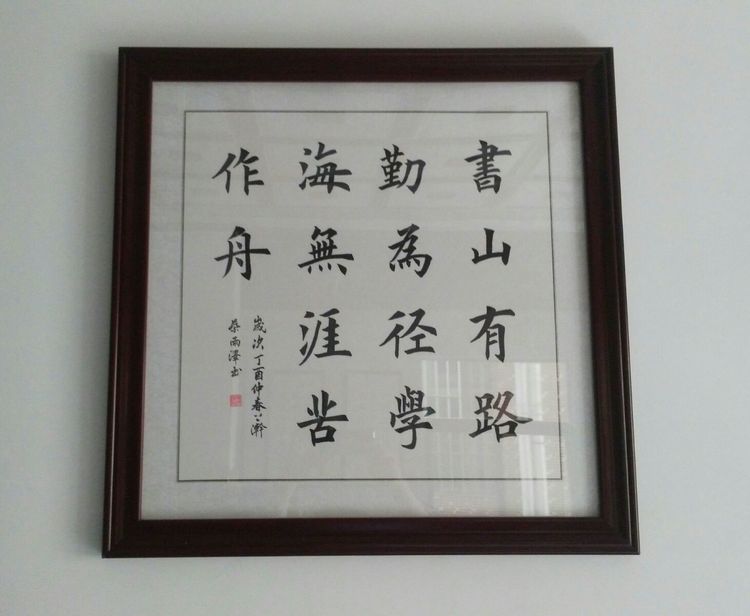 書山有路
勤為径學
海無涯苦
作舟
歲次丁酉仲春澣
雨澤书